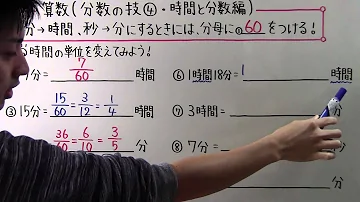 算数(分数の技④・時間と分数編)
分→時間、秒→分にするときには、分母に60をつける!
時間の単位を変えてみよう!
分= 7/60 時間
③ 15分= 15/60 = 3/12 = 1/4 時間
36/60 = 6/10 = 3/5 分
⑥ 1時間18分= 1 時間
⑦ 3時間= 分
⑧ 7分=
分